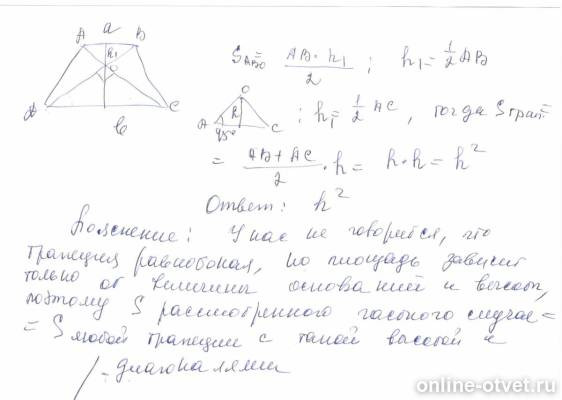 A a B
h1
O
D C
b
S ABO = AB · h1 / 2 ; h1 = 1/2 AB
O
h
A 45° C
; h1 = 1/2 AC , тогда S трап =
= AB + AC / 2 · h = h · h = h²
Ответ: h²
Пояснение: У нас не говорится, что
трапеция равнобокая, но площадь зависит
только от величины оснований и высоты,
поэтому S рассмотренного частного случая =
= S любой трапеции с такой высотой и
диагоналями
online-otvet.ru